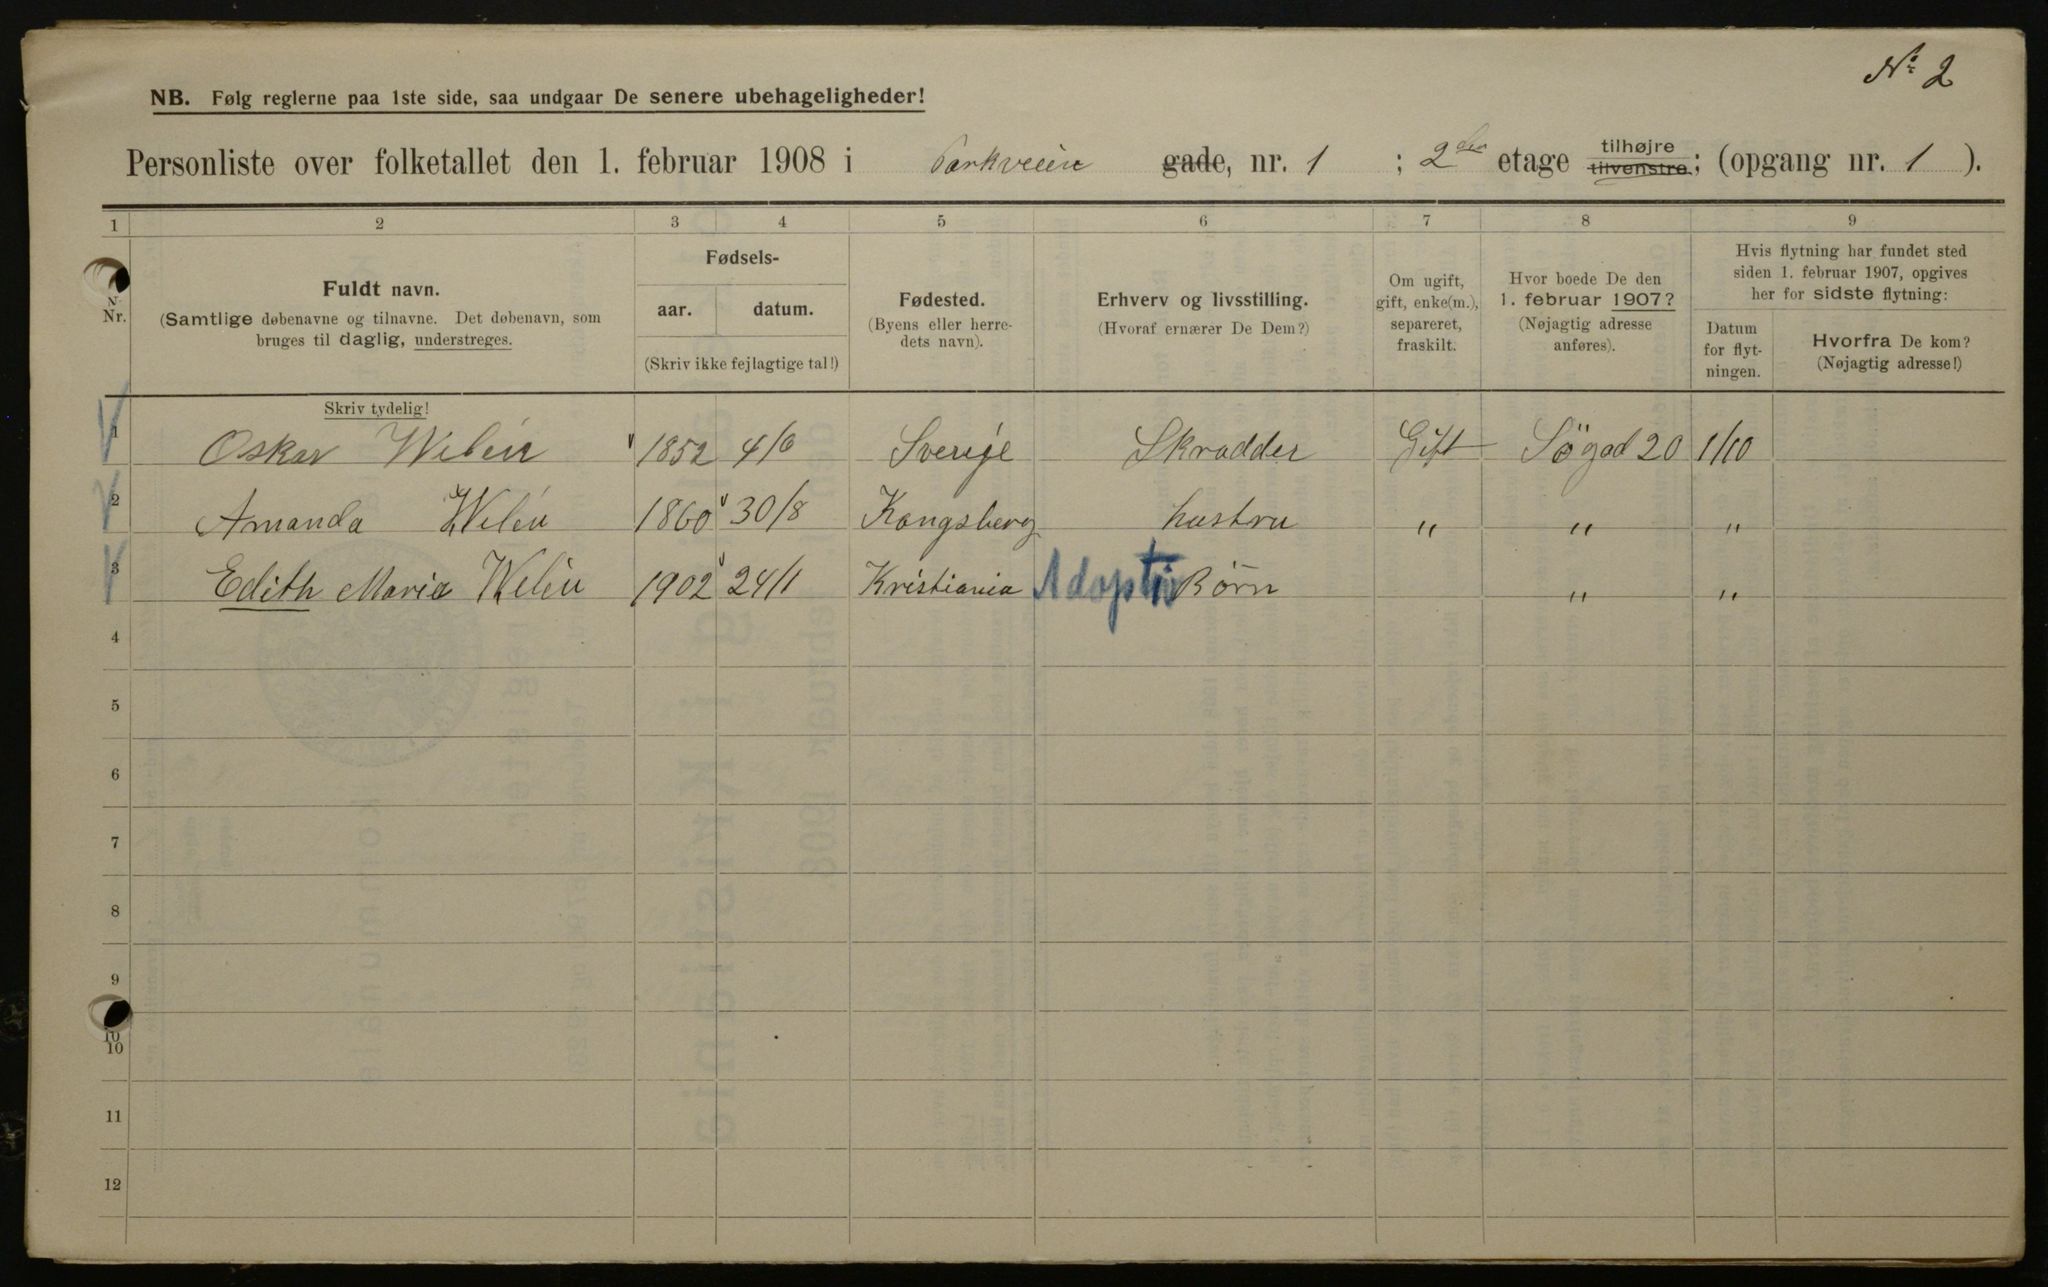 No 2
NB. Følg reglerne paa 1ste side, saa undgaar De senere ubehageligheder!
Personliste over folketallet den 1. februar 1908 i Parkveien gade, nr. 1 ; 2den etage tilhøjre tilvenstre; (opgang nr. 1 ).
1 2 3 4 5 6 7 8 9
Nr.
Fuldt navn.
(Samtlige døbenavne og tilnavne. Det døbenavn, som
bruges til daglig, understreges.
Skriv tydelig!
Fødsels-
aar. datum.
(Skriv ikke fejlagtige tal!)
Fødested.
(Byens eller herre-
dets navn).
Erhverv og livsstilling.
(Hvoraf ernærer De Dem?)
Om ugift,
gift, enke(m.),
separeret,
fraskilt.
Hvor boede De den
1. februar 1907?
(Nøjagtig adresse
anføres).
Hvis flytning har fundet sted
siden 1. februar 1907, opgives
her for sidste flytning:
Datum
for flyt-
ningen.
Hvorfra De kom?
(Nøjagtig adresse!)
1 Oskar Welén 1852 4/6 Sverige Skradder Gift Søgad 20 1/10
2 Amanda Welén 1860 30/8 Kongsberg hustru " " "
3 Edith Marie Welén 1902 24/1 Kristiania Adoptiv Børn " "
4
5
6
7
8
9
10
10
11
12